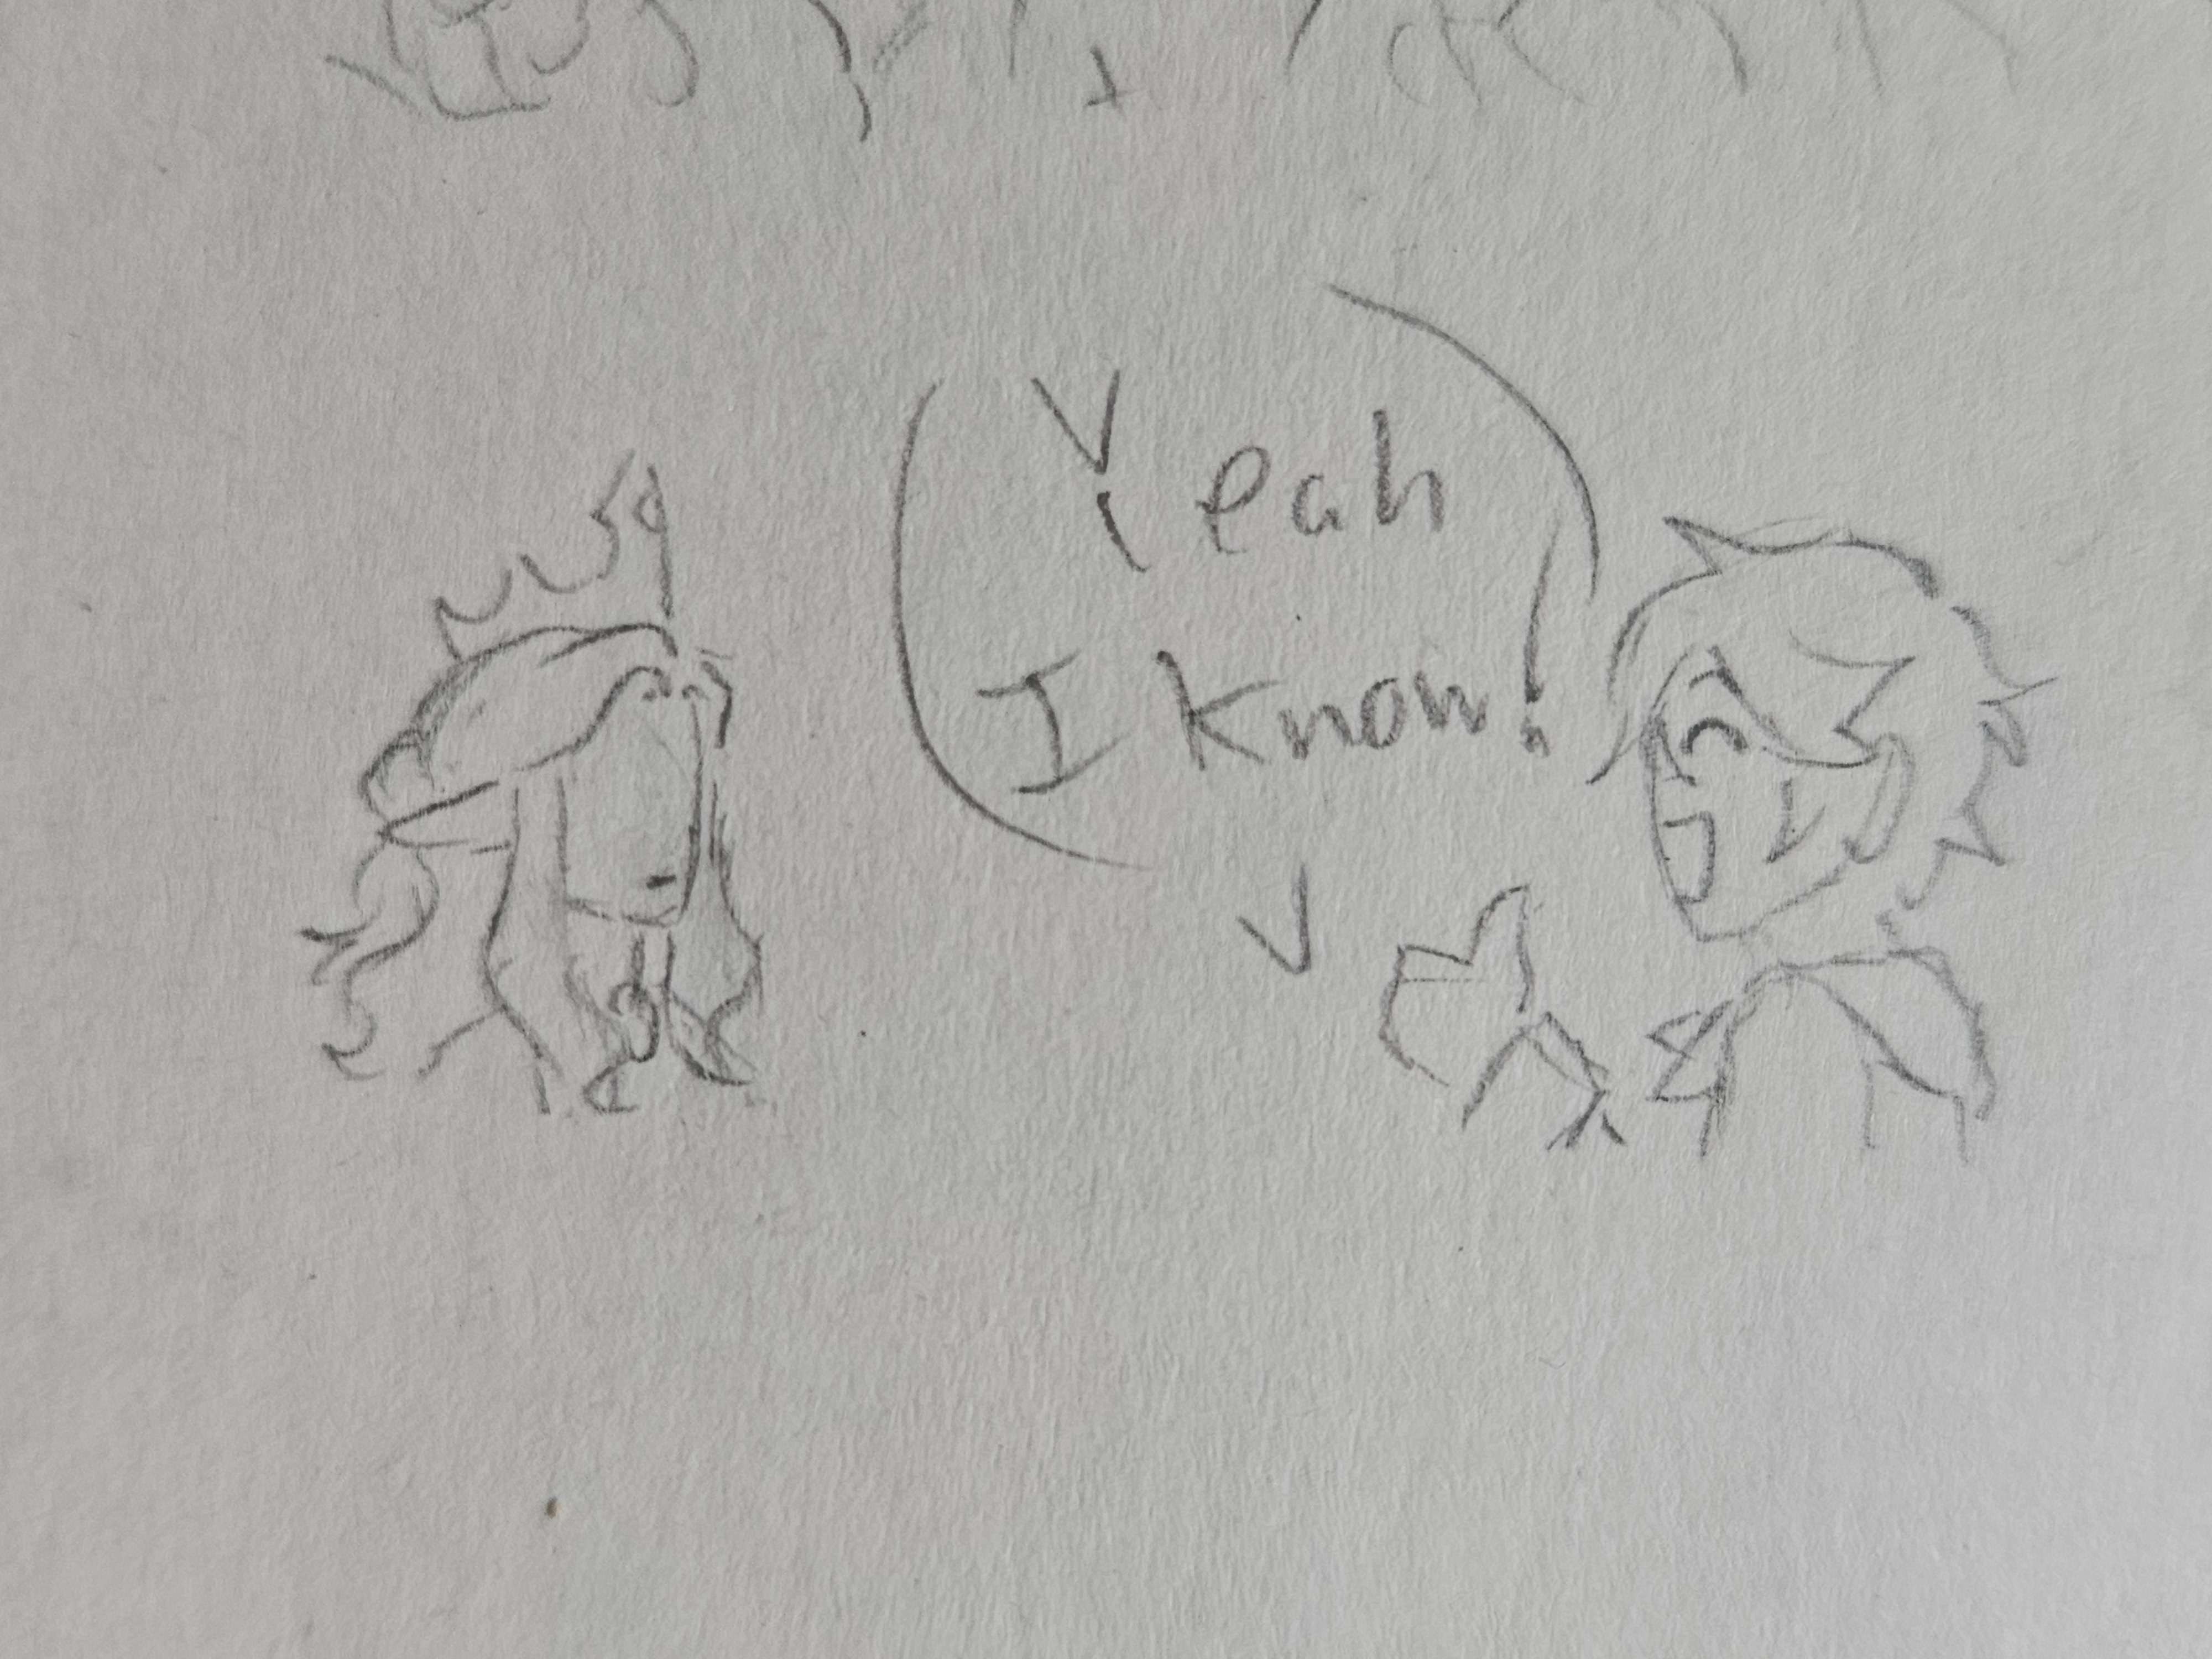 Yeah
I know!